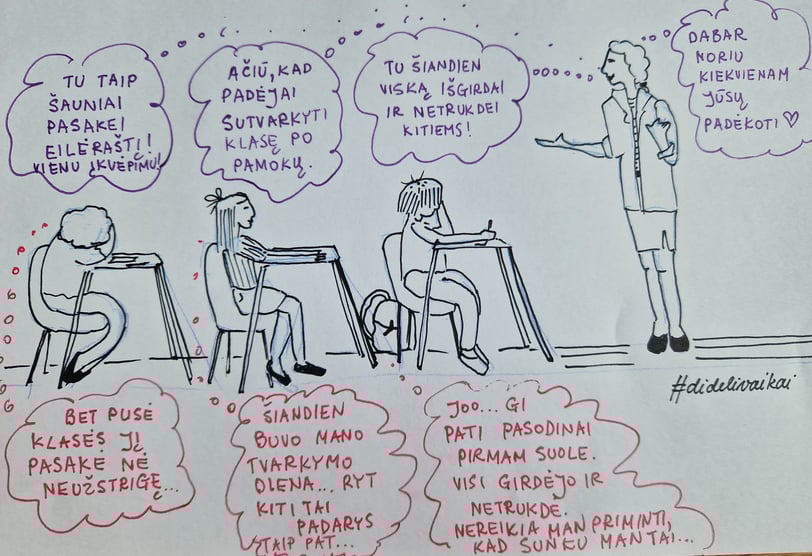 TU TAIP
ŠAUNIAI
PASAKEI
EILĖRAŠTĮ!
VIENU ĮKVĖPIMU!
AČIŪ, KAD
PADĖJAI
SUTVARKYTI
KLASĘ PO
PAMOKŲ.
TU ŠIANDIEN
VISKĄ IŠGIRDAI
IR NETRUKDEI
KITIEMS!
DABAR
NORIU
KIEKVIENAM
JŪSŲ
PADĖKOTI
#didelivaikai
BET PUSĖ
KLASĖS JĮ
PASAKĖ NĖ
NEUŽSTRIGĘ...
ŠIANDIEN
BUVO MANO
TVARKYMO
DIENA... RYT
KITI TAI
PADARYS
TAIP PAT...
JOO... GI
PATI PASODINAI
PIRMAM SUOLE.
VISI GIRDĖJO IR
NETRUKDĖ.
NEREIKIA MAN PRIMINTI,
KAD SUNKU MAN TAI...